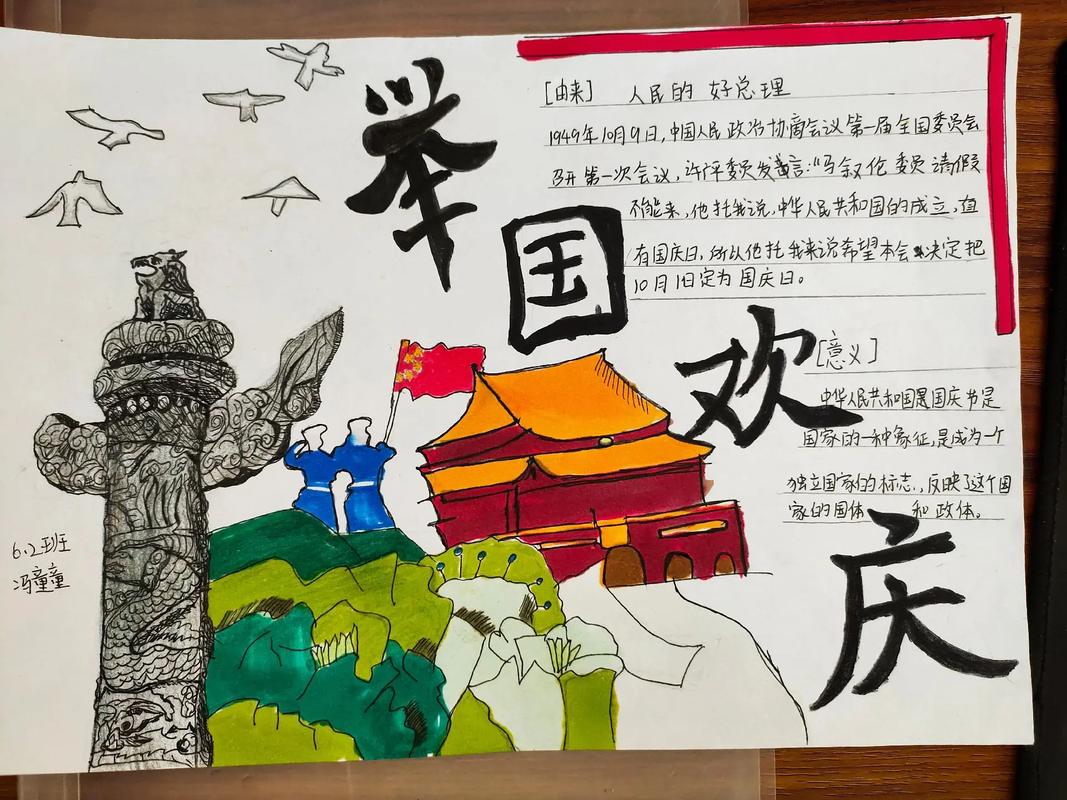 举国欢庆
[由来] 人民的 好总理
1949年10月9日,中国人民政治协商会议第一届全国委员会
召开第一次会议,许广平委员发言:“马叙伦委员请假
不能来,他托我说,中华人民共和国的成立,应
有国庆日,所以他托我来说希望本会决定把
10月1日定为国庆日。
[意义]
中华人民共和国是国庆节是
国家的一种象征,是成为一个
独立国家的标志,反映了这个国
家的国体 和政体。
6.2班
冯童童